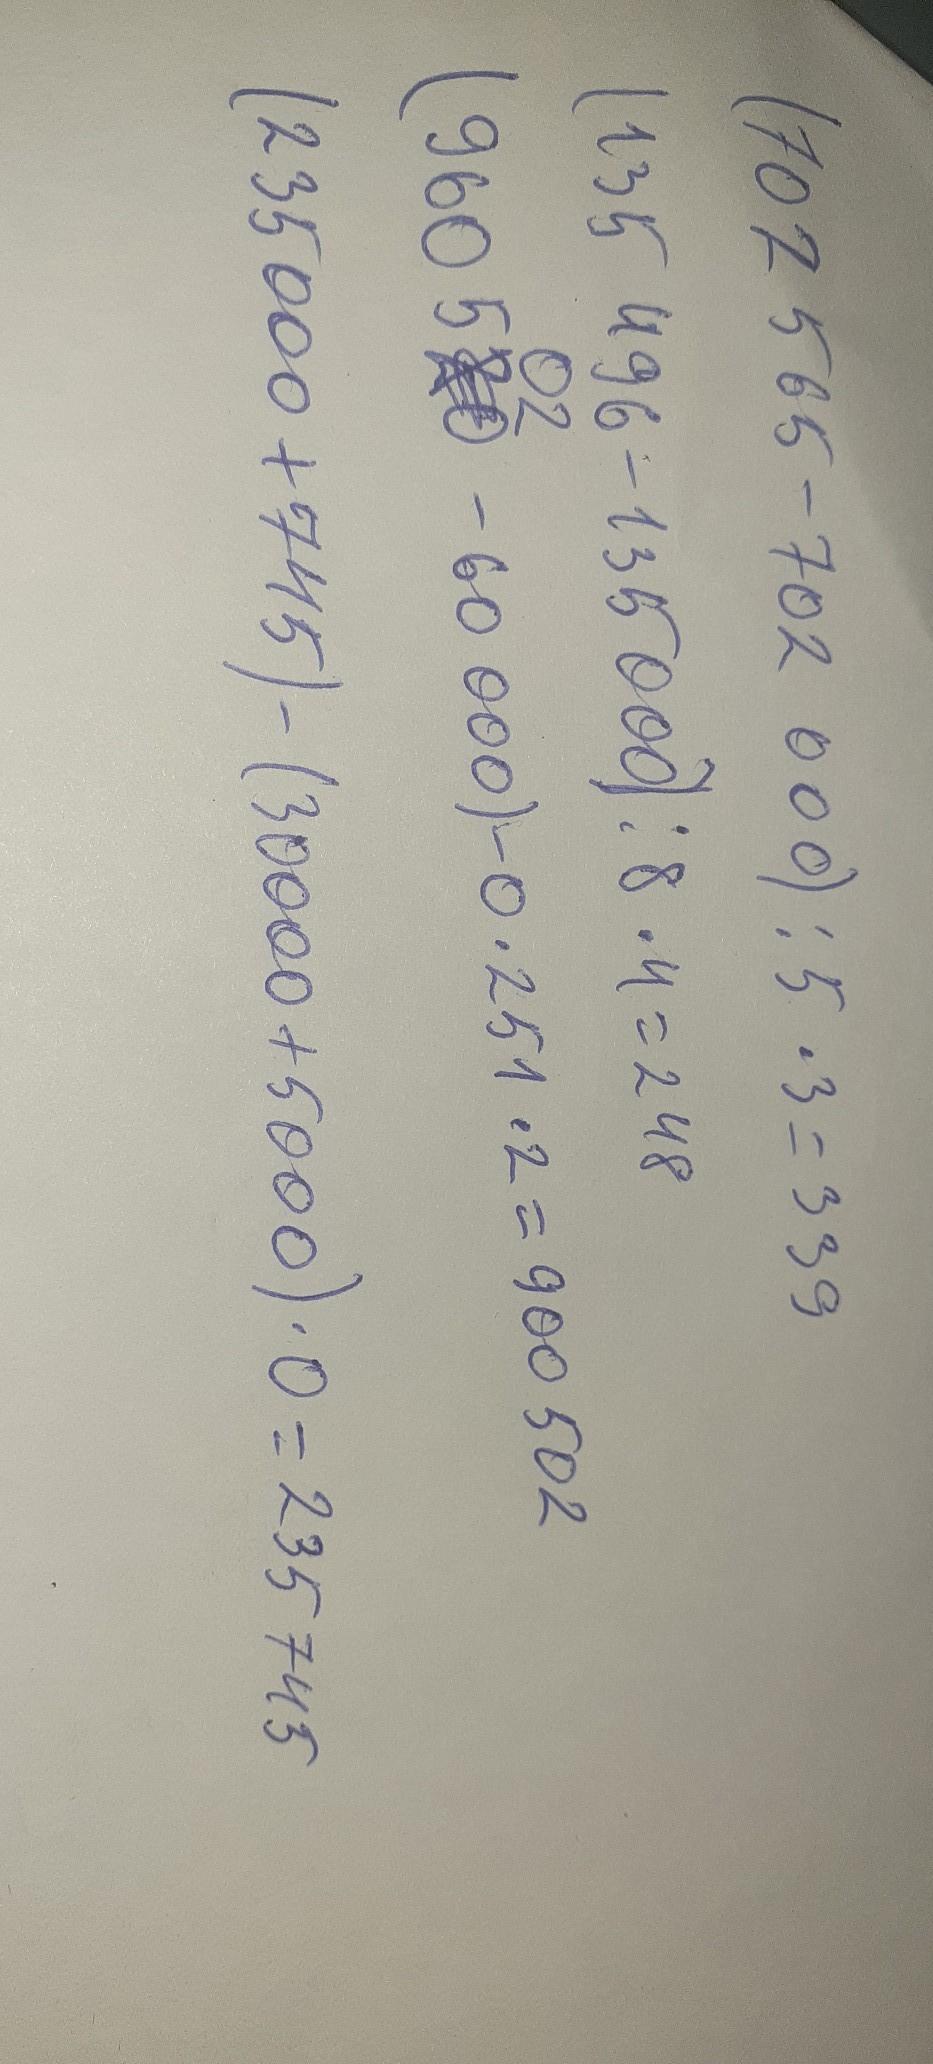 (702 565 - 702 000) : 5 · 3 = 339
(135 496 - 135 000) : 8 · 4 = 248
(960 502 - 60 000) - 0 · 251 · 2 = 900 502
(235 000 + 745) - (30000 + 5000) · 0 = 235 745